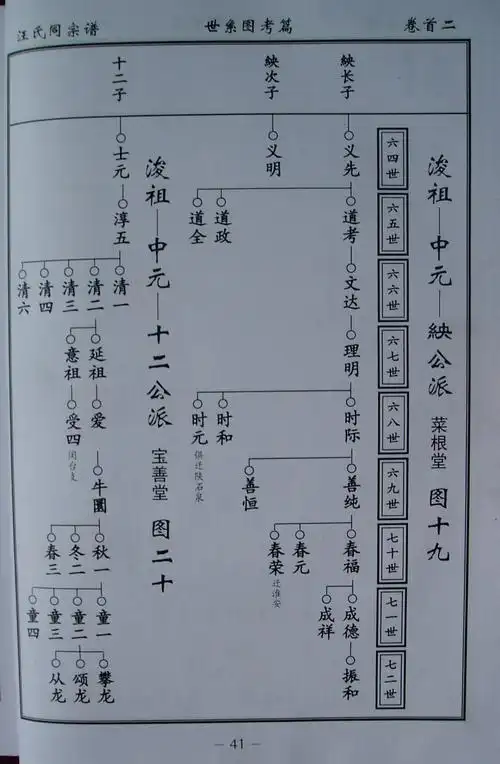 汪氏同宗谱
世系图考篇
卷首二
浚祖—中元—紻公派 菜根堂 图十九
六四世
六五世
六六世
六七世
六八世
六九世
七十世
七一世
七二世
紻长子
义先
道考
文达
理明
时际
善纯
春福
成德
振和
成祥
春元
春荣
迁淮安
善恒
时和
时元
俱迁陕石泉
道政
道全
紻次子
义明
浚祖—中元—十二公派 宝善堂 图二十
十二子
士元
淳五
清一
清二
清三
清四
清六
延祖
意祖
爱
受四
闰台支
牛圆
秋一
冬二
春三
童一
童二
童三
童四
攀龙
颂龙
从龙
— 41 —